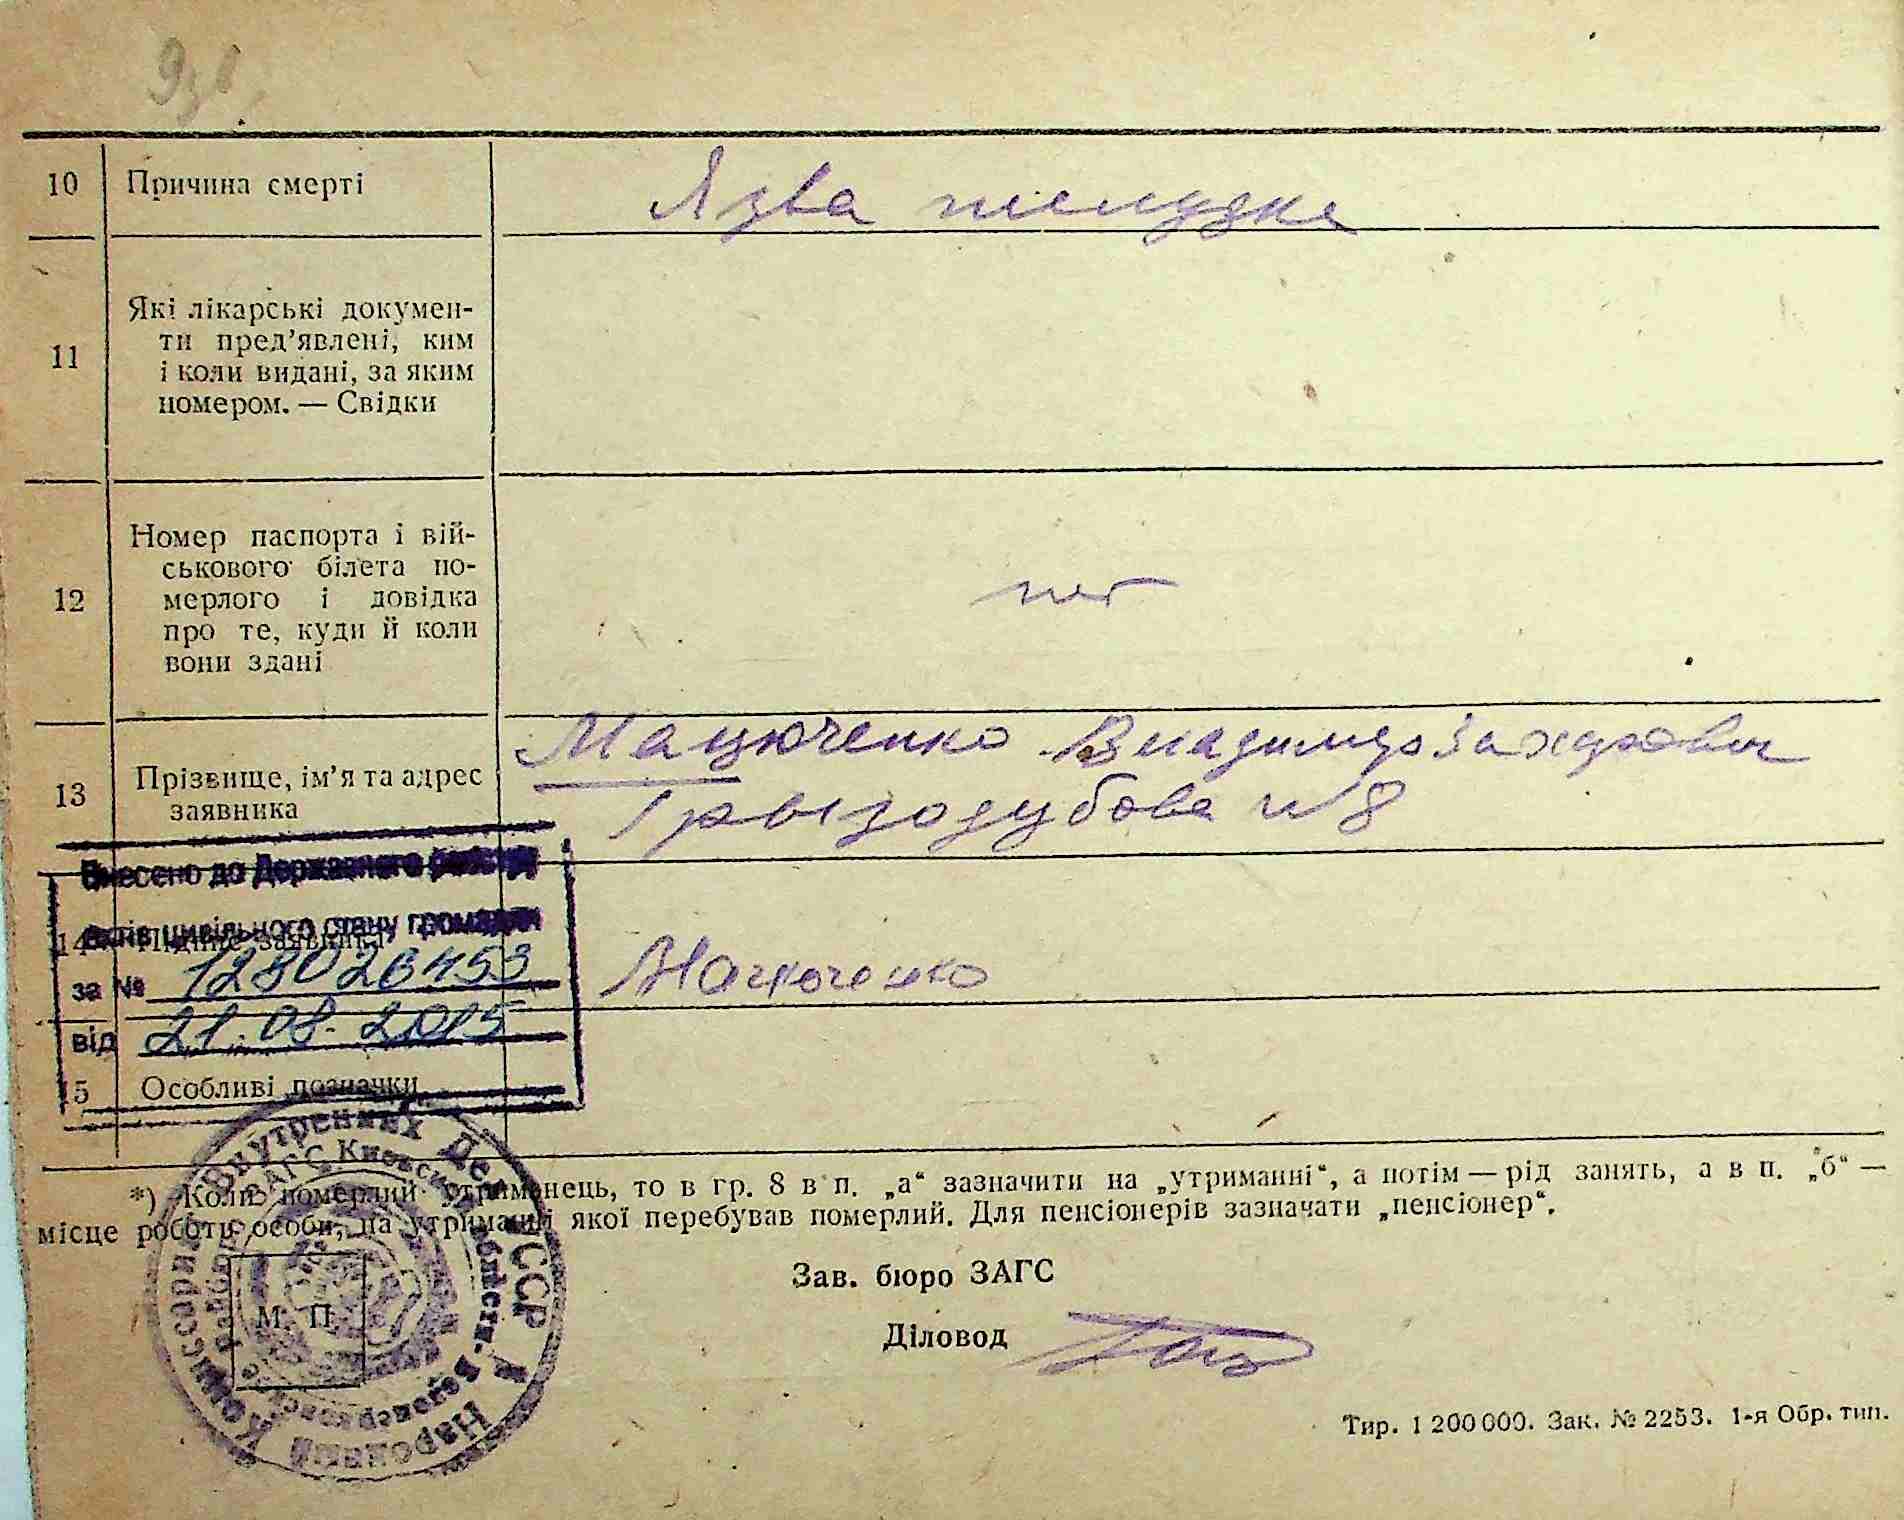 10 Причина смерті Язва желудка
11 Які лікарські докумен-
ти пред’явлені, ким
і коли видані, за яким
номером. — Свідки
12 Номер паспорта і вій-
ськового білета по-
мерлого і довідка
про те, куди й коли
вони здані
нет
13 Прізвище, ім’я та адрес
заявника
Мацюченко Владимир Захарович
Грызодубова № 8
Внесено до Державного реєстру
актів цивільного стану громадян
14 Підпис заявника Мацюченко
за № 128026453
від 21.08.2015
15 Особливі позначки
*) Коли померлий утриманець, то в гр. 8 в п. „а“ зазначити на „утриманні“, а потім — рід занять, а в п. „б“ —
місце роботи особи, на утриманні якої перебував померлий. Для пенсіонерів зазначати „пенсіонер“.
Народний Комиссариат Внутренних Дел СССР
ЗАГС Киевской области
М. П.
Зав. бюро ЗАГС
Діловод
Тир. 1 200 000. Зак. № 2253. 1-я Обр. тип.